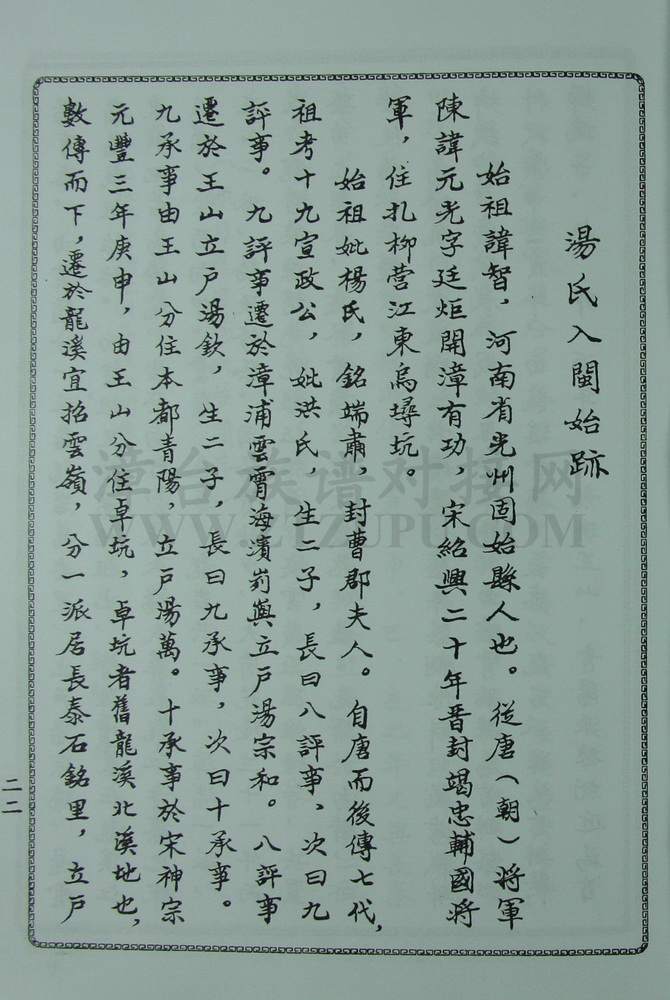 湯氏入閩始跡
始祖諱智，河南省光州固始縣人也。從唐（朝）將軍
陳諱元光字廷炬開漳有功，宋紹興二十年晋封竭忠輔國將
軍，住扎柳营江東烏潯坑。
始祖妣楊氏，銘端肅，封曹郡夫人。自唐而後傳七代，
祖考十九宣政公，妣洪氏，生二子，長曰八評事，次曰九
評事。九評事遷於漳浦雲霄海濱峛嶼立戶湯宗和。八評事
遷於王山立戶湯欽，生二子，長曰九承事，次曰十承事。
九承事由王山分住本都青陽，立戶湯萬。十承事於宋神宗
元豐三年庚申，由王山分住卓坑，卓坑者舊龍溪北溪地也，
數傳而下，遷於龍溪宜招雲嶺，分一派居長泰石銘里，立戶
二二
漳台族谱对接网
WWW.ZTZUPU.COM